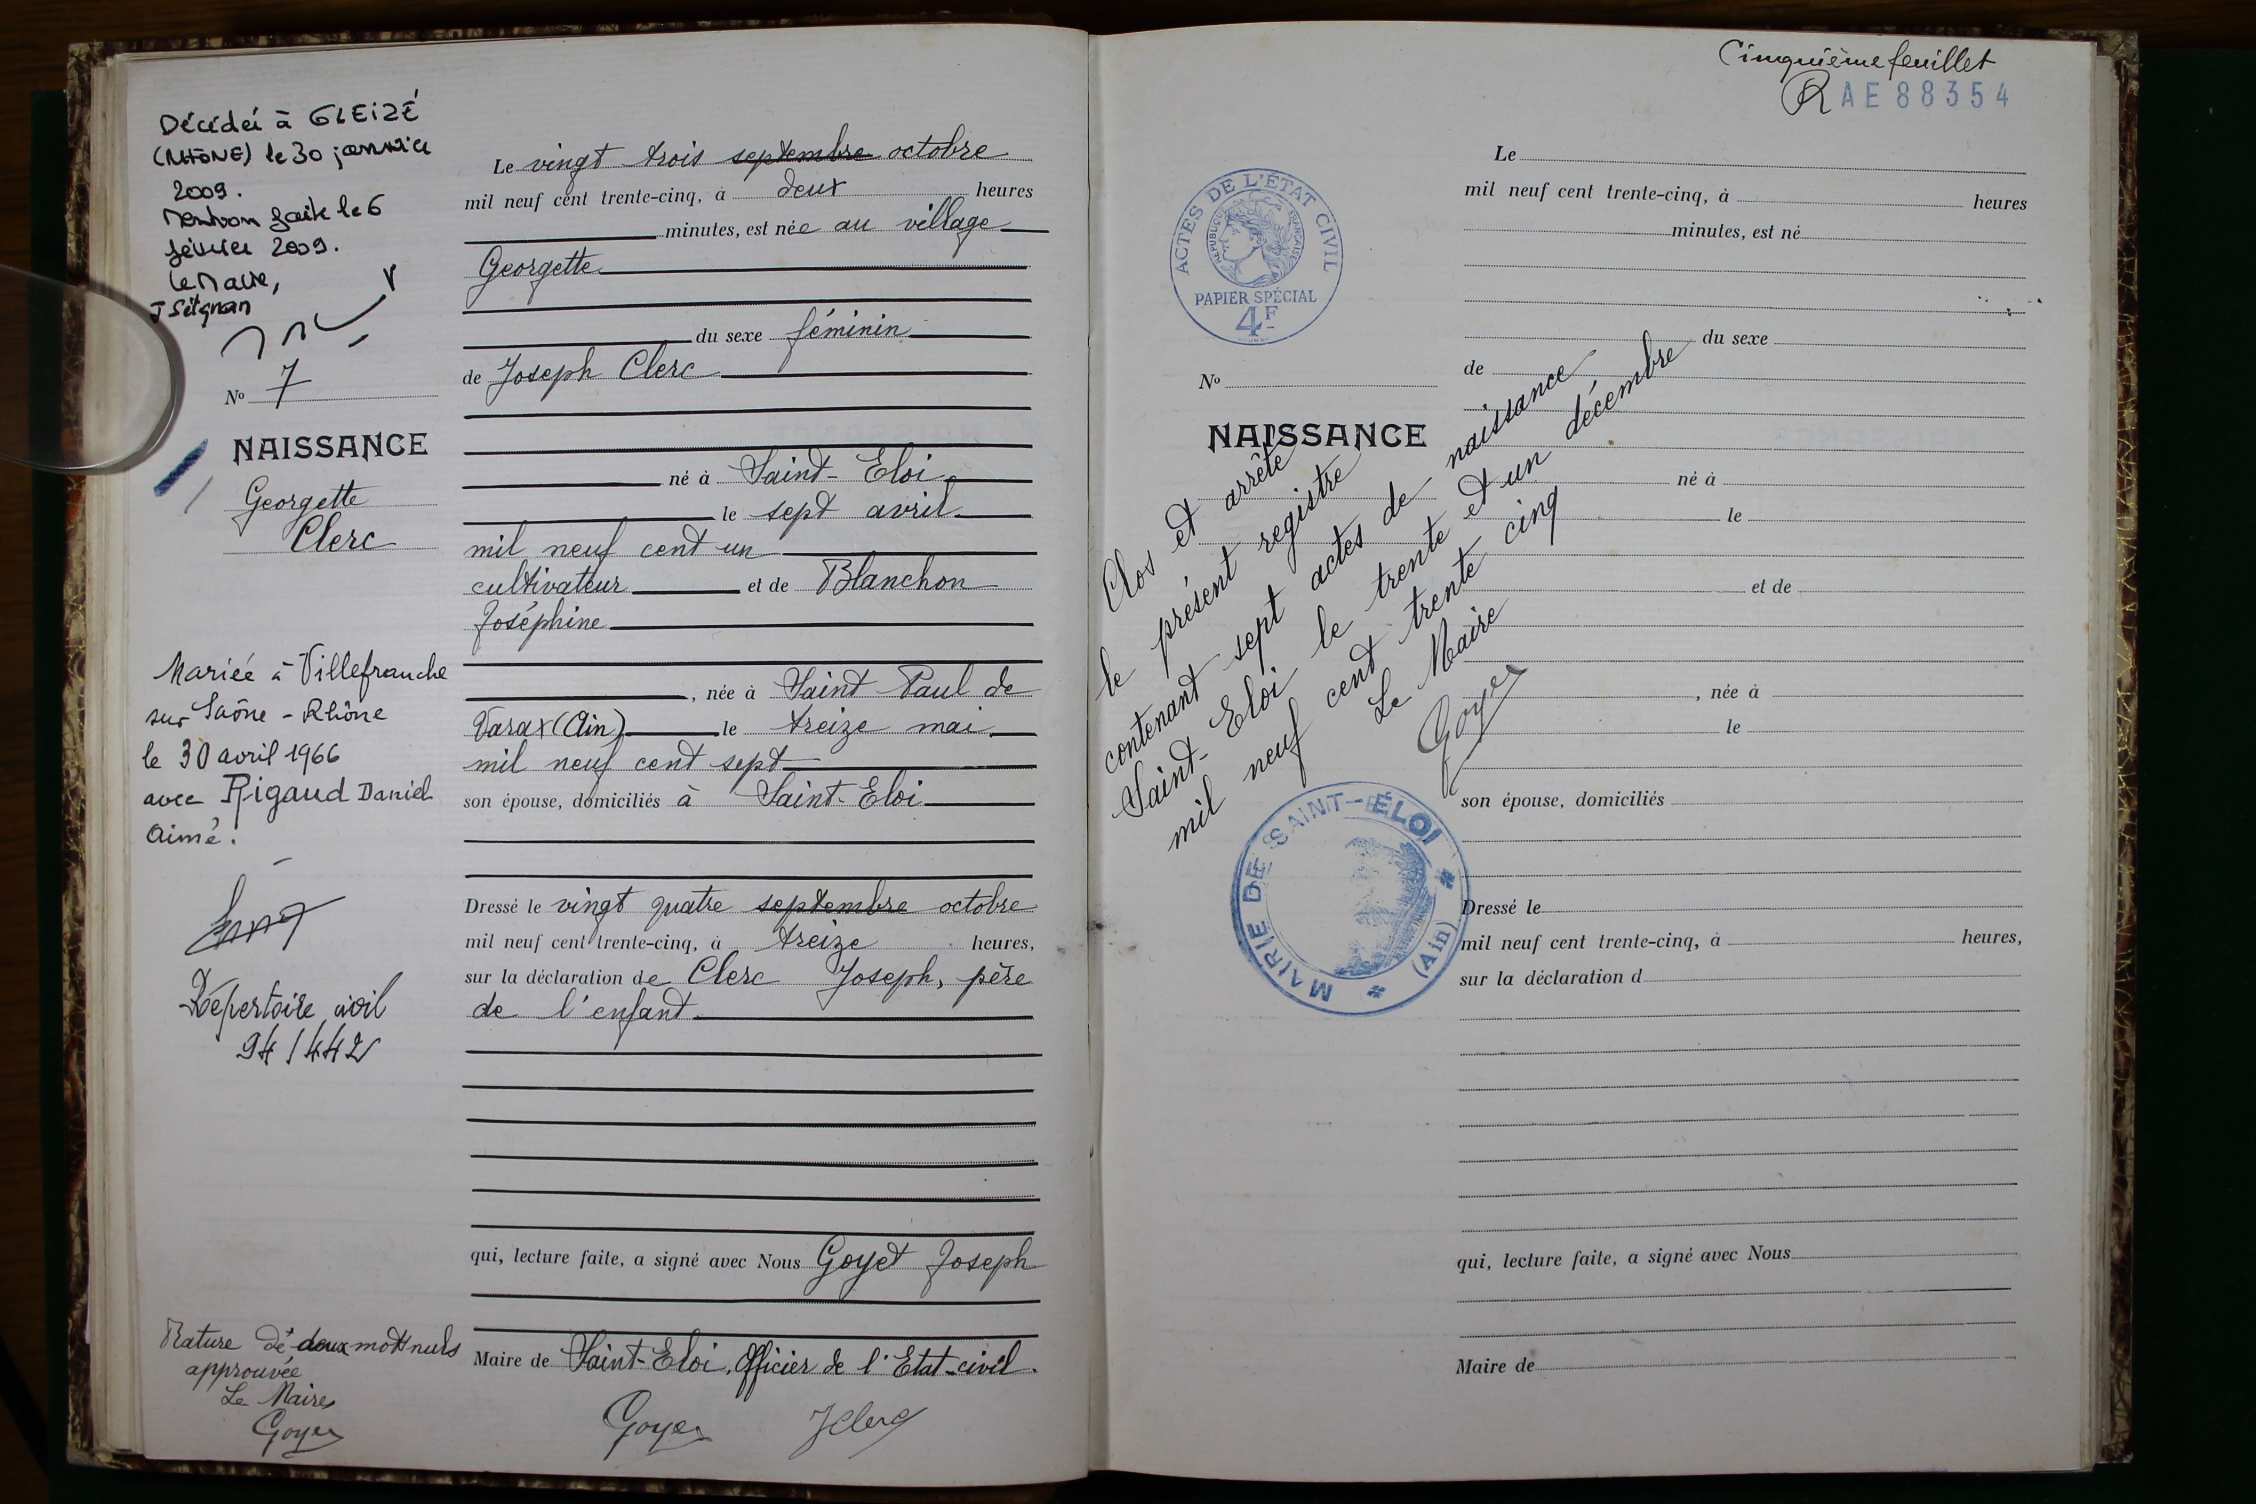 Décédéi à GLEIZÉ
(RHÔNE) le 30 janvier
2009.
Mention faite le 6
février 2009.
Le Maire,
No 7
NAISSANCE
Georgette
Clerc
Mariée à Villefranche
sur Saône - Rhône
le 30 avril 1966
avec Rigaud Daniel
Aimé.
Répertoire civil
94/442
Rature de deux mots nuls
approuvée
Le Maire
Goyet
Le vingt trois septembre octobre
mil neuf cent trente-cinq, à deux heures
minutes, est née au village
Georgette
du sexe féminin
de Joseph Clerc
né à Saint-Eloi
le sept avril
mil neuf cent un
cultivateur et de Blanchon
Joséphine
, née à Saint Paul de
Varax (Ain) le treize mai
mil neuf cent sept
son épouse, domiciliés à Saint-Eloi
Dressé le vingt quatre septembre octobre
mil neuf cent trente-cinq, à treize heures,
sur la déclaration de Clerc Joseph, père
de l'enfant
qui, lecture faite, a signé avec Nous Goyet Joseph
Maire de Saint-Eloi, Officier de l'Etat-civil.
Goyet JClerc
Cinquième feuillet
AE88354
ACTES DE L'ÉTAT CIVIL
RÉPUBLIQUE FRANÇAISE
PAPIER SPÉCIAL
4F
No
NAISSANCE
Clos et arrêté
le présent registre
contenant sept actes de naissance
Saint-Eloi le trente et un décembre
mil neuf cent trente cinq
Le Maire
Goyet
MAIRIE DE SAINT-ÉLOI
(Ain)
Le
mil neuf cent trente-cinq, à heures
minutes, est né
du sexe
de
né à
le
et de
, née à
le
son épouse, domiciliés
Dressé le
mil neuf cent trente-cinq, à heures,
sur la déclaration d
qui, lecture faite, a signé avec Nous
Maire de